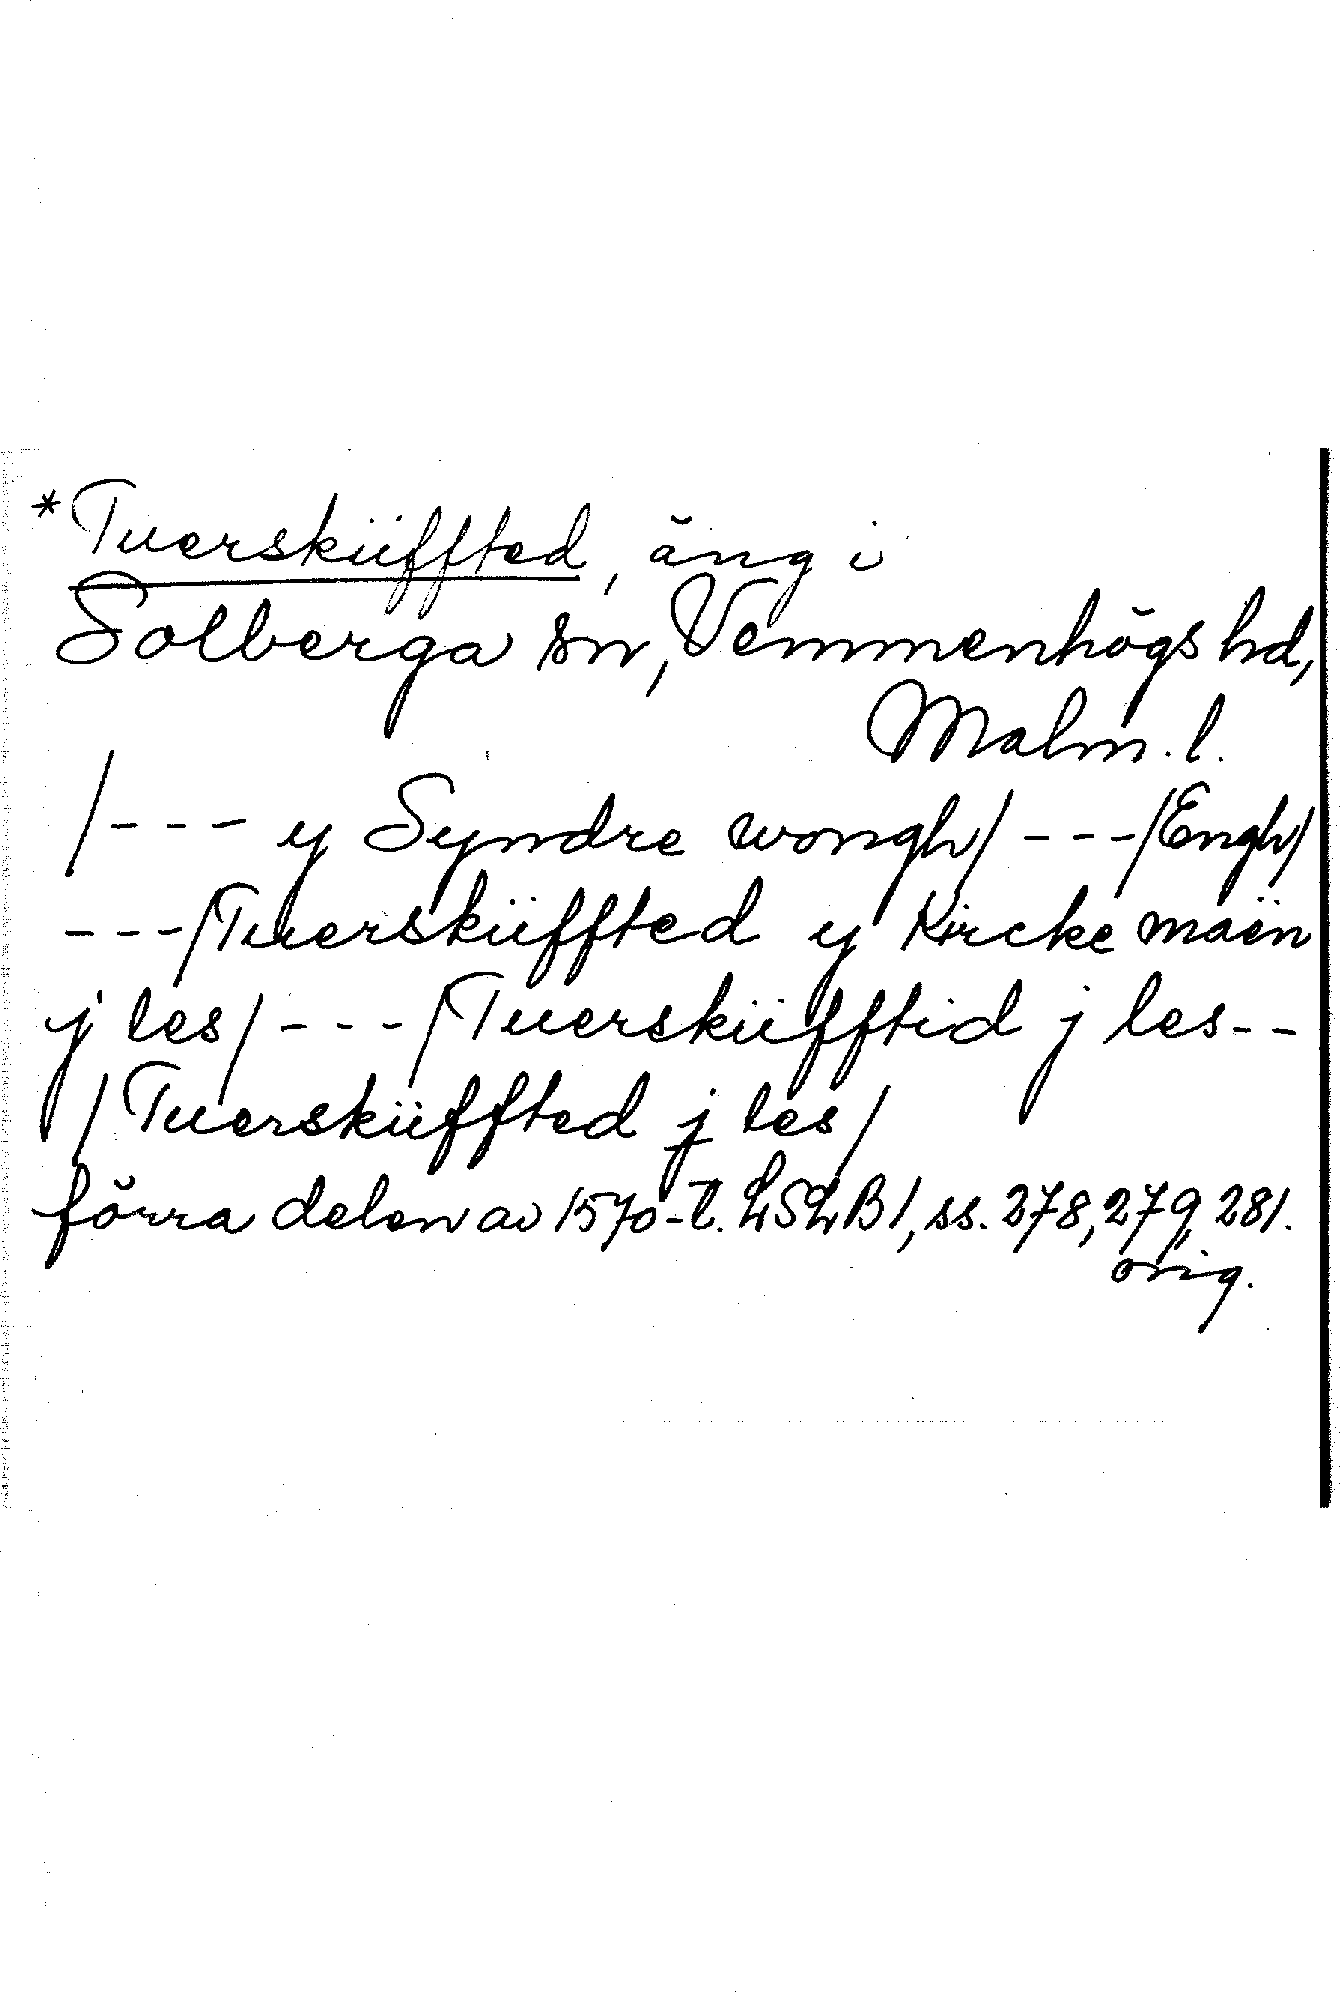 *Tuersküffted, äng i
Solberga sn, Vemmenhögs hd,
Malm. l.
/--- y Syndre wongh/ ---/Engh/
---/Tuersküffted y Kircke maën
j les/ ---/Tuersküfftid j les--
/Tuersküffted j les/
förra delen av 1570-t. LSLB1, ss. 278, 279, 281.
orig.